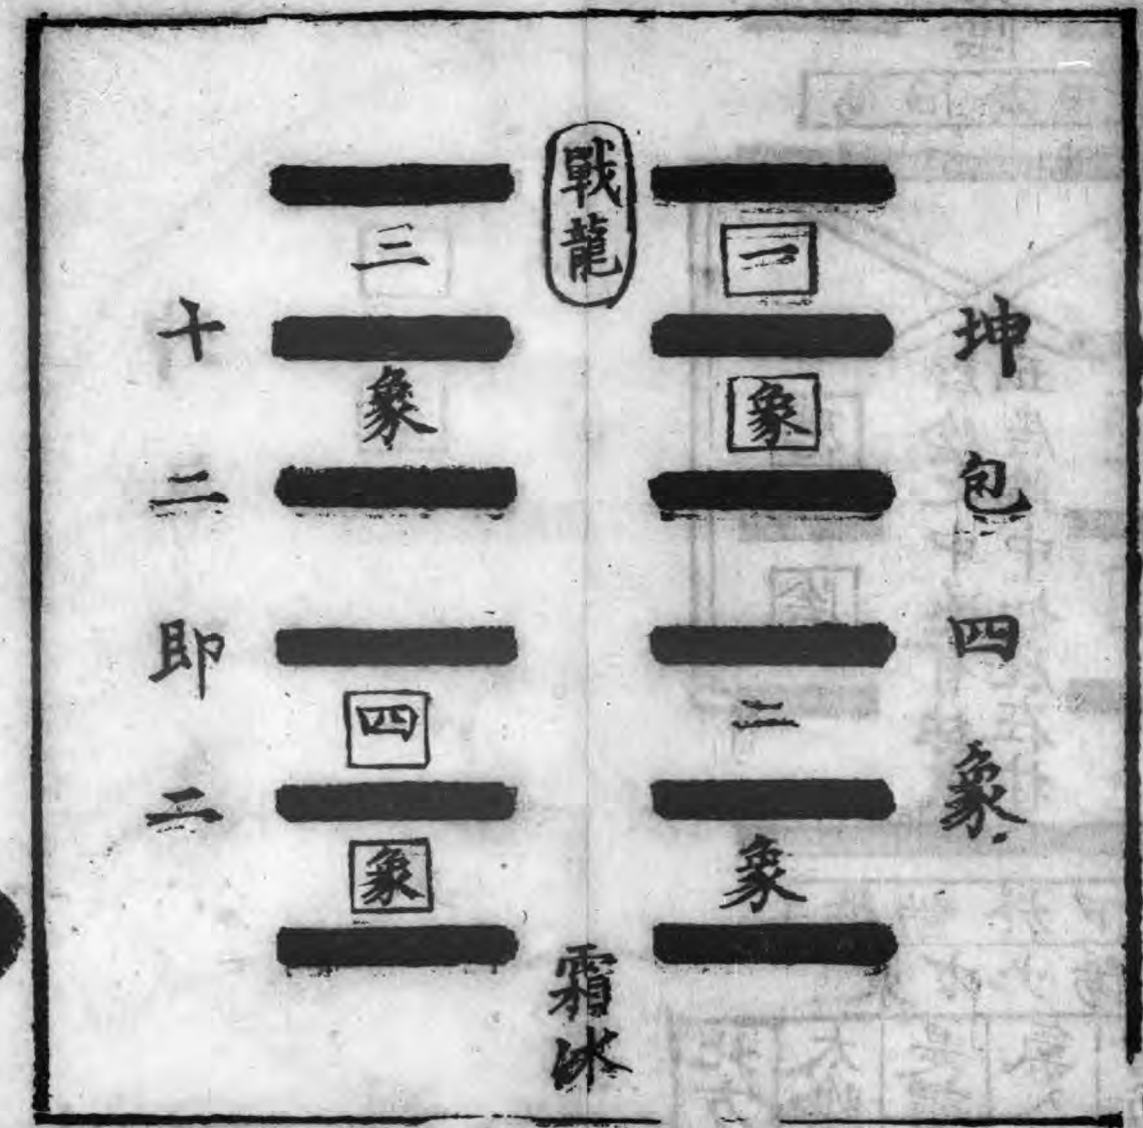 坤包四象
一象
二象
戰龍
霜冰
三象
四象
十二即二